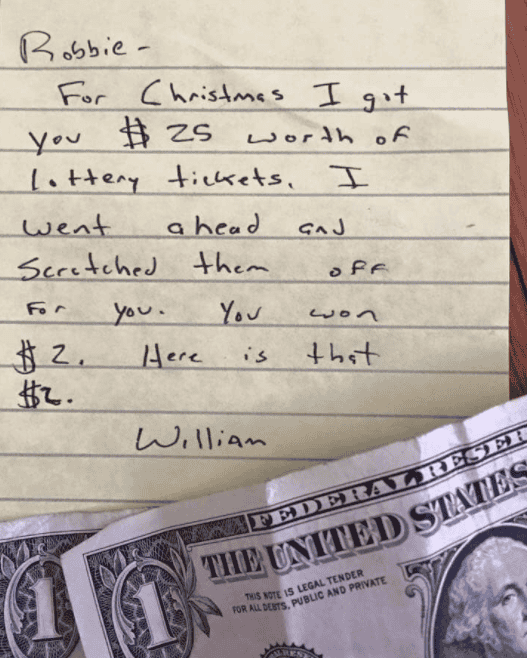 Robbie -
For Christmas I got
you $25 worth of
lottery tickets. I
went ahead and
Scratched them off
For you. You won
$2. Here is that
$2.
William
FEDERAL RESER
THE UNITED STATES
THIS NOTE IS LEGAL TENDER
FOR ALL DEBTS, PUBLIC AND PRIVATE
1
1